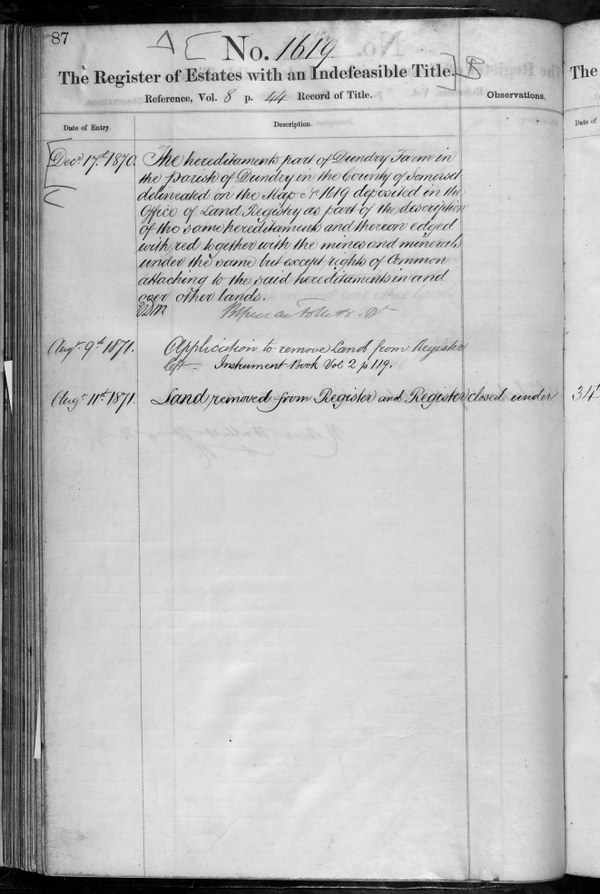 87
No. 1619.
The Register of Estates with an Indefeasible Title.
Reference, Vol. 8 p. 44 Record of Title.
Observations.
Date of Entry.
Description.
Decr. 17th 1870.
The hereditaments part of Dundry Farm in
the Parish of Dundry in the County of Somerset
delineated on the Map No 1619 deposited in the
Office of Land Registry as part of the description
of the same hereditaments and thereon edged
with red together with the mines and minerals
under the same but except rights of Common
attaching to the said hereditaments in and
over other lands.
Augt. 9th 1871.
Application to remove Land from Register
left — Instrument Book Vol 2 p 119.
Augt. 11th 1871.
Land removed from Register and Register closed under
The
Date of
34